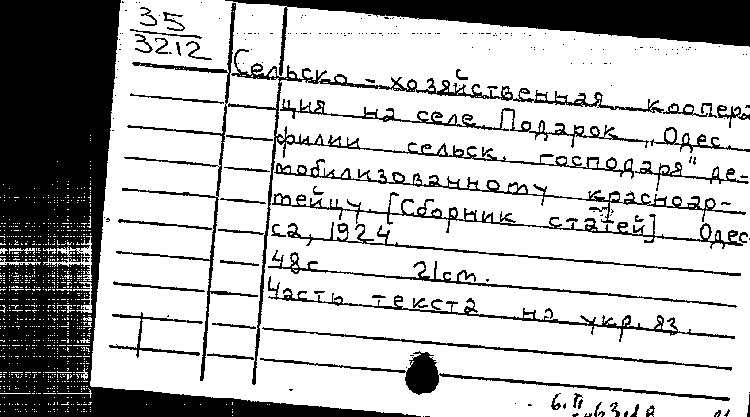 35
3212
Сельско-хозяйственная коопера
ция на селе. Подарок „Одес.
филии сельск. господаря" де-
мобилизованному красноар-
мейцу. [Сборник статей]. Одес
са, 1924.
48с 21см.
Часть текста на укр. яз.